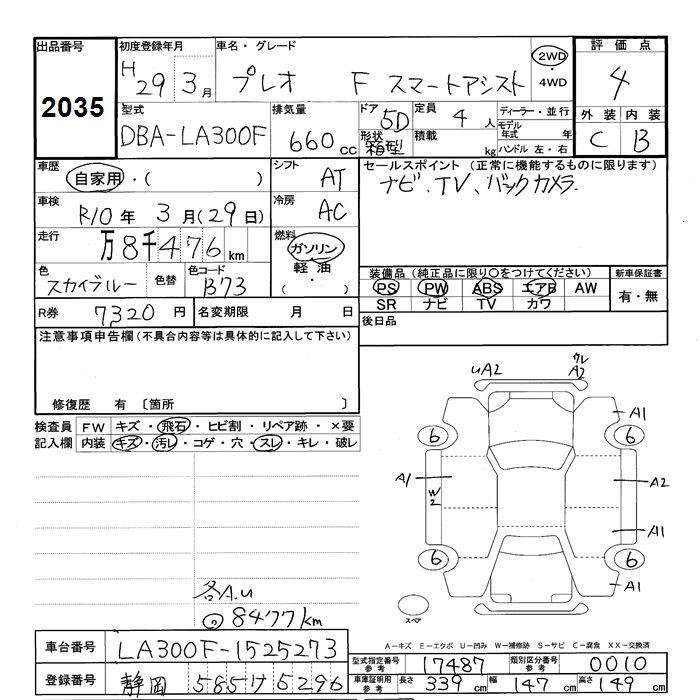 出品番号 初度登録年月 車名・グレード 2WD ・4WD 評価点
2035 H29 3月 プレオ F スマートアシスト 4
型式 排気量 ドア 5D 定員 4人 ディーラー・並行 外装 内装
DBA-LA300F 660cc 形状 箱型 積載 kg モデル年式 年 C B
ハンドル 左・右
車歴 シフト セールスポイント (正常に機能するものに限ります)
自家用・( ) AT ナビ、TV、バックカメラ
車検 冷房
R10年 3月(29日) AC
走行 燃料
万8千476km ガソリン
色 色替 色コード 軽油 装備品(純正品に限り○をつけてください) 新車保証書
スカイブルー B73 (・) PS PW ABS エアB AW 有・無
SR ナビ TV カワ
R券 7320円 名変期限 月 日 後日品
注意事項申告欄(不具合内容等は具体的に記入して下さい)
修復歴 有 〔箇所 〕
検査員 FW キズ・飛石・ヒビ割・リペア跡・×要
記入欄 内装 キズ・汚レ・コゲ・穴・スレ・キレ・破レ
uA2 A2
A1
6 6
A1 W2 A2
A1
6 6
A1
スペア
8477km
A-キズ E-エクボ U-凹み W-補修跡 S-サビ C-腐食 XX-交換済
車台番号 LA300F-1525273
型式指定番号参考 17487 類別区分番号参考 0010
登録番号 静岡 585 296
車庫証明用参考 長さ 339cm 幅 147cm 高さ 149cm